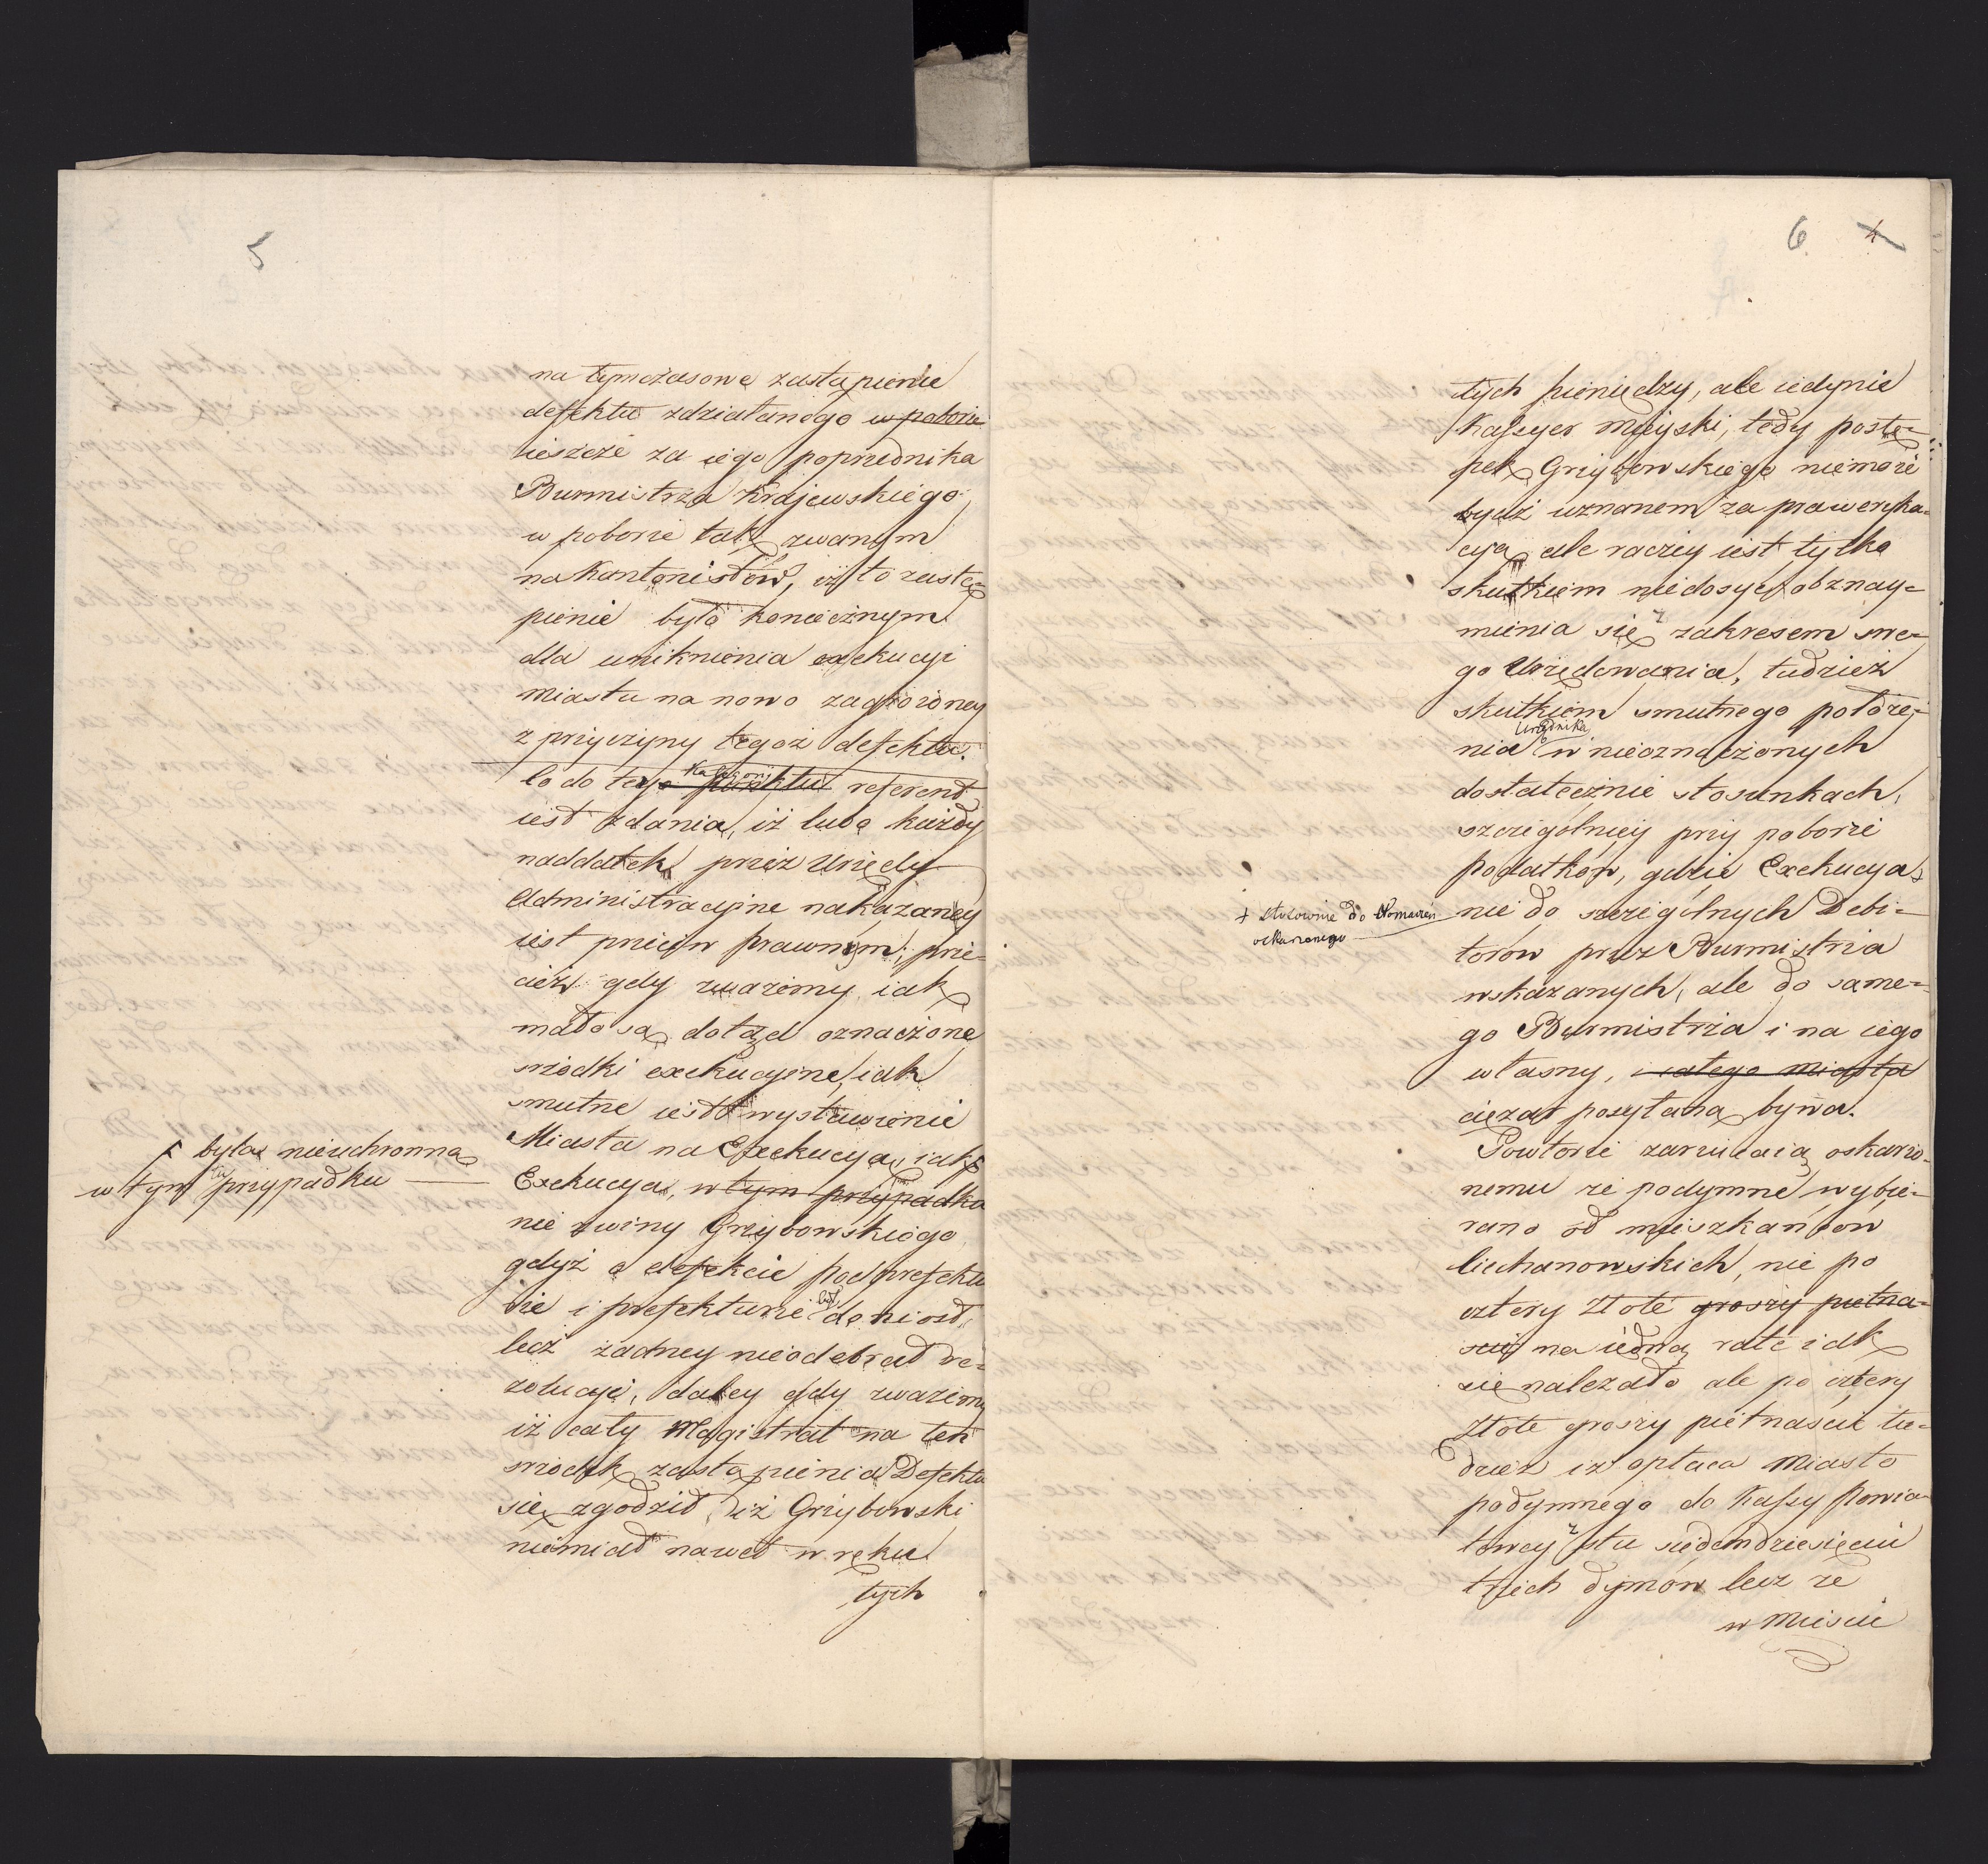 5
na tymczasowe zastąpienie
defektu zdziałanego w poborze
ieszcze za iego poprzednika
Burmistrza Krajewskiego,
w poborze tak zwanym
na Kantonistów, iż to zastą-
pienie było koniecznym
dla uniknienia exekucyi
miastu na nowo zagrożoney
z przyczyny tegoż defektu.
Co do tego punktu referent
Kategorii
iest zdania, iż lubo każdy
naddatek przez Urzędy
Administracyine nakazaney
iest przeciw prawnym, prze-
cież gdy zważemy iak
mało są dotąd oznaczone
srzodki exekucyine, iak
smutne iest wystawienie
Miasta na Exekucyą, iak
Exekucya, w tym przypadku
+ była nieuchronną
w tym przypadku
nie z winy Grzybowskiego
gdyż o defekcie podprefektu-
rze i prefekturze był doniosł,
lecz żadney nieodebrał re-
zolucyi, daley gdy zważemy
iż cały Magistrat na ten
srzodek zastąpienia Defektu
się zgodził, iż Grzybowski
niemiał nawet w ręku
tych
6 4
tych pieniędzy, ale iedynie
Kassyer mieyski, tedy postę-
pek Grzybowskiego niemoże
bydź uznanem za praweryka-
cyą, ale raczey iest tylko
skutkiem niedosyć obznay-
mienia się z zakresem swe-
go Urzędowania, tudzież
skutkiem smutnego położe-
nia Urzędnika w nieoznaczonych
dostatecznie stosunkach,
szczególniey przy poborze
podatków, gdzie Exekucya
+ stosownie do tłomaczeń
oskarzonego
nie do szczególnych Debi-
torów przez Burmistrza
wskazanych, ale do same-
go Burmistrza i na iego
własny, i całego miasta
ciężar posyłana bywa.
Powtórze zarzucaią oskarżo-
nemu że podymne wybie-
rano od mieszkańców
Ciechanowskich, nie po
cztery złote groszy pietna-
scie na iedną ratę iak
się należało ale po cztery
złote groszy piętnaście tu-
dzież iż opłaca miasto
podymnego do Kassy Powia-
towey z stu siedemdziesięciu
trzech dymów lecz że
w mieście